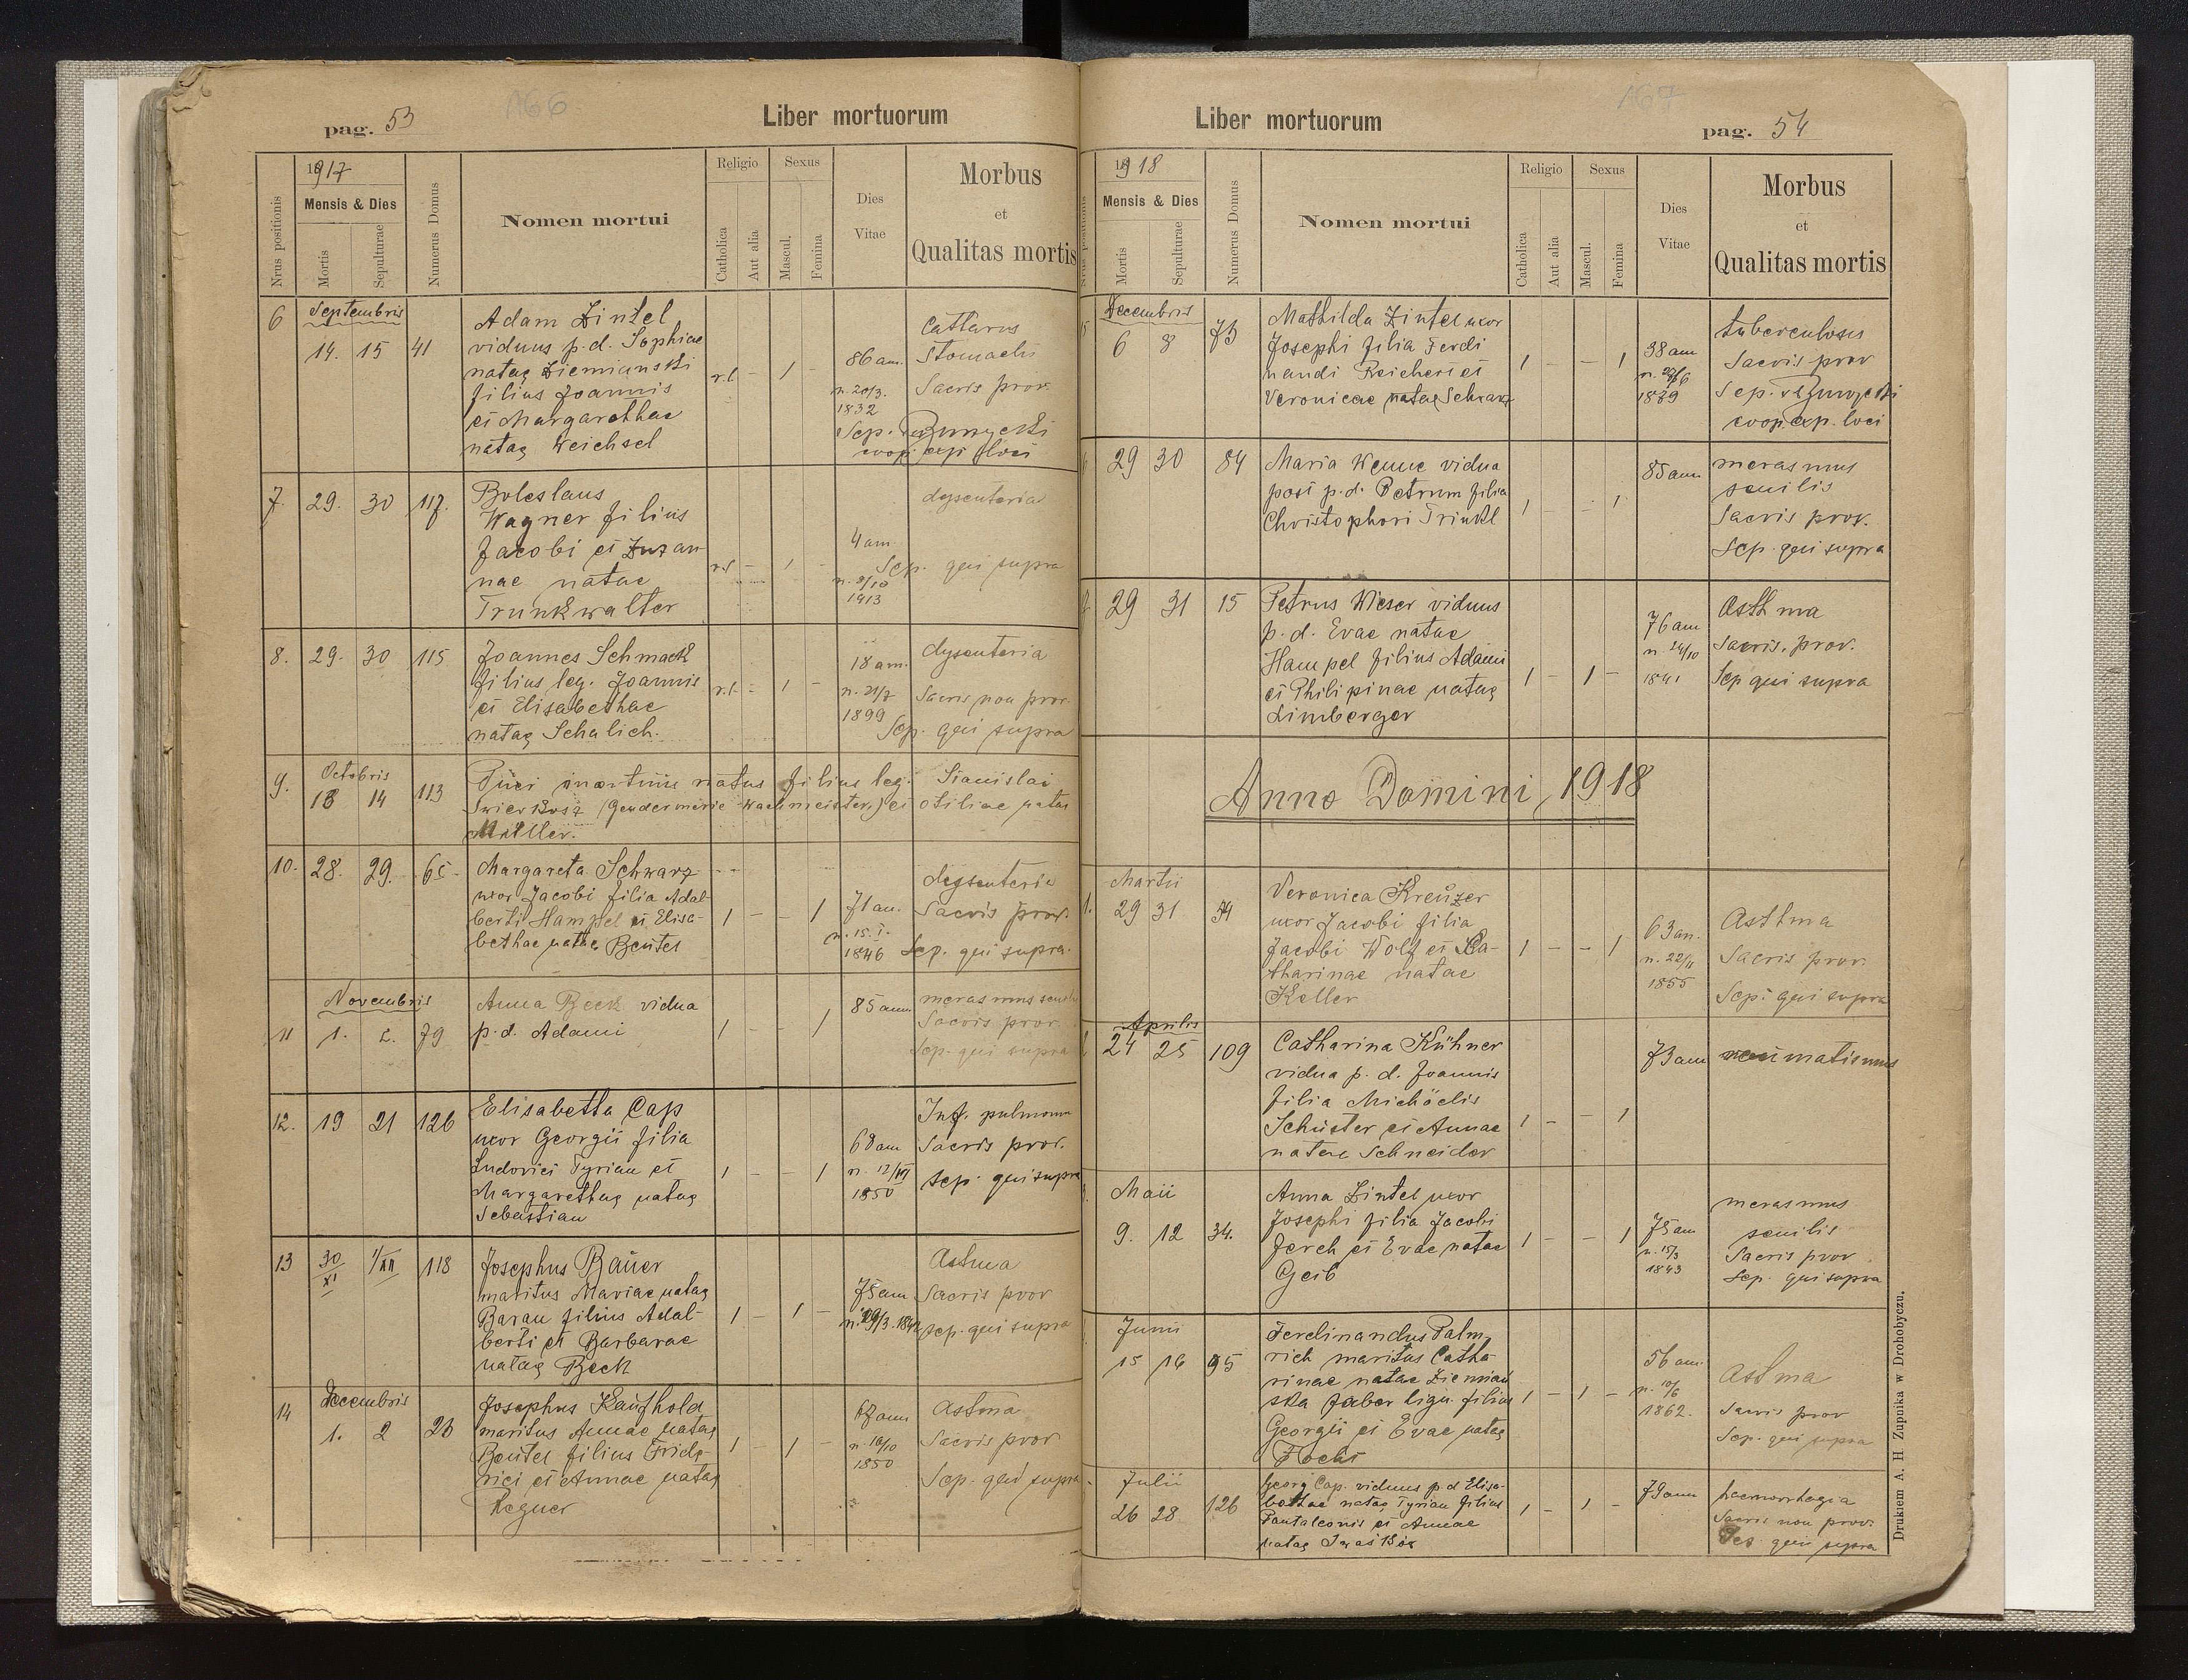 166
pag. 53
Liber mortuorum
Nrus positionis
1917
Mensis & Dies
Mortis
Sepulturae
Numerus Domus
Nomen mortui
Religio
Catholica
Aut alia
Sexus
Mascul.
Femina
Dies
Vitae
Morbus
et
Qualitas mortis
6
Septembris
14. 15 41
Adam Zintel
viduus p. d. Sophiae
natae Ziemianski
filius Joannis
et Margarethae
natae Weichsel
r.l. - 1
86 ann.
n. 20/3.
1832
Cattarus
Stomachi
Sacris prov.
Sep.
coop. exp. loci
7. 29. 30 117.
Boleslaus
Wagner filius
Jacobi et Zuzan
nae natae
Trunkwalter
r.l. - 1 -
4 ann.
1913
dysenteria
Sep. qui supra
8. 29. 30 115
Joannes Schmack
filius leg. Joannis
et Elisabethae
natae Schalich.
r.l. - 1 -
18 ann.
n. 21/7
1899
dysenteria
Sacris non prov.
Sep. qui supra
9.
Octobris
13 14 113
Pueri mortuus natus filius leg. Stanislai
(Gendarmerie Wachmeister) et Otiliae natae
Müller.
10. 28. 29. 65
Margareta Schwarz
uxor Jacobi filia Adal-
berti Hampel et Elisa-
bethae natae Beutel
1 - - 1
71 an.
n. 15. I.
1846
dysenteria
Sacris prov.
Sep. qui supra.
Novembris
11 1. 2. 79
Anna Beck vidua
p. d. Adami
1 - - 1
85 ann.
merasmus senilis
Sacris prov
Sep. qui supra
12. 19 21 126
Elisabetha Cap
uxor Georgii filia
Ludovici Tyrian et
Margarethae natae
Sebastian
1 - - 1
68 ann
1850
Inf. pulmonu
Sacris prov.
Sep. qui supra
13 30/XI 1/XII 118
Josephus Bauer
maritus Mariae natae
Baran filius Adal-
berti et Barbarae
natae Beck
1 - 1 -
75 ann
Astma
Sacris prov
Sep. qui supra
14
Decembris
1. 2 23
Josephus Kaufhold
maritus Annae natae
Beutel filius Fride-
rici et Annae natae
Regner
1 - 1 -
67 ann
n. 16/10
1850
Astma
Sacris prov
Sep. qui supra
167
Liber mortuorum
pag. 54
Nrus positionis
1918
Mensis & Dies
Mortis
Sepulturae
Numerus Domus
Nomen mortui
Religio
Catholica
Aut alia
Sexus
Mascul.
Femina
Dies
Vitae
Morbus
et
Qualitas mortis
Decembris
6 8 73
Mathilda Zintel uxor
Josephi filia Ferdi
nandi Reichert et
Veronicae natae Schwarz
1 - - 1
38 ann
tuberculosis
Sacris prov
Sep.
coop. exp. loci
29 30 84
Maria Wenne vidua
post p. d. Petrum filia
Christophori Trinkl
1 - - 1
85 ann
merasmus
senilis
Sacris prov.
Sep. qui supra
29 31 15
Petrus Wieser viduus
p. d. Evae natae
Hampel filius Adami
et Philipinae natae
Limberger
1 - 1 -
76 ann
n. 24/10
1841
Asthma
Sacris. prov.
Sep qui supra
Anno Domini 1918
Martii
1. 29 31 54
Veronica Kreuzer
uxor Jacobi filia
Jacobi Wolf et Ka-
tharinae natae
Keller
1 - - 1
63 an.
n. 22/11
1855
Asthma
Sacris prov.
Sep. qui supra
Aprilis
24 25 109
Catharina Kühner
vidua p. d. Joannis
filia Michaelis
Schuster et Annae
natae Schneider
1 - - 1
73 ann
Maii
9. 12 34.
Anna Zintel uxor
Josephi filia Jacobi
Jerch et Evae natae
Geib
1 - - 1
75 ann
n. 15/3
1843
merasmus
senilis
Sacris prov
Sep. qui supra
Junii
15 16 95
Ferdinandus Palm
rich maritus Catha-
rinae natae Ziemian
ska faber lign. filius
Georgii et Evae natae
1 - 1 -
56 ann.
n. 10/6
1862.
Astma
Sacris prov
Sep. qui supra
Julii
26 28 126
Georg Cap. viduus p d Elisa-
bethae natae Tyrian filius
Pantaleonis et Annae
natae
1 - 1 -
79 ann
haemorrhagia
Sacris non prov.
Sep qui supra
Drukiem A. H Zupnika w Drohobyczu.